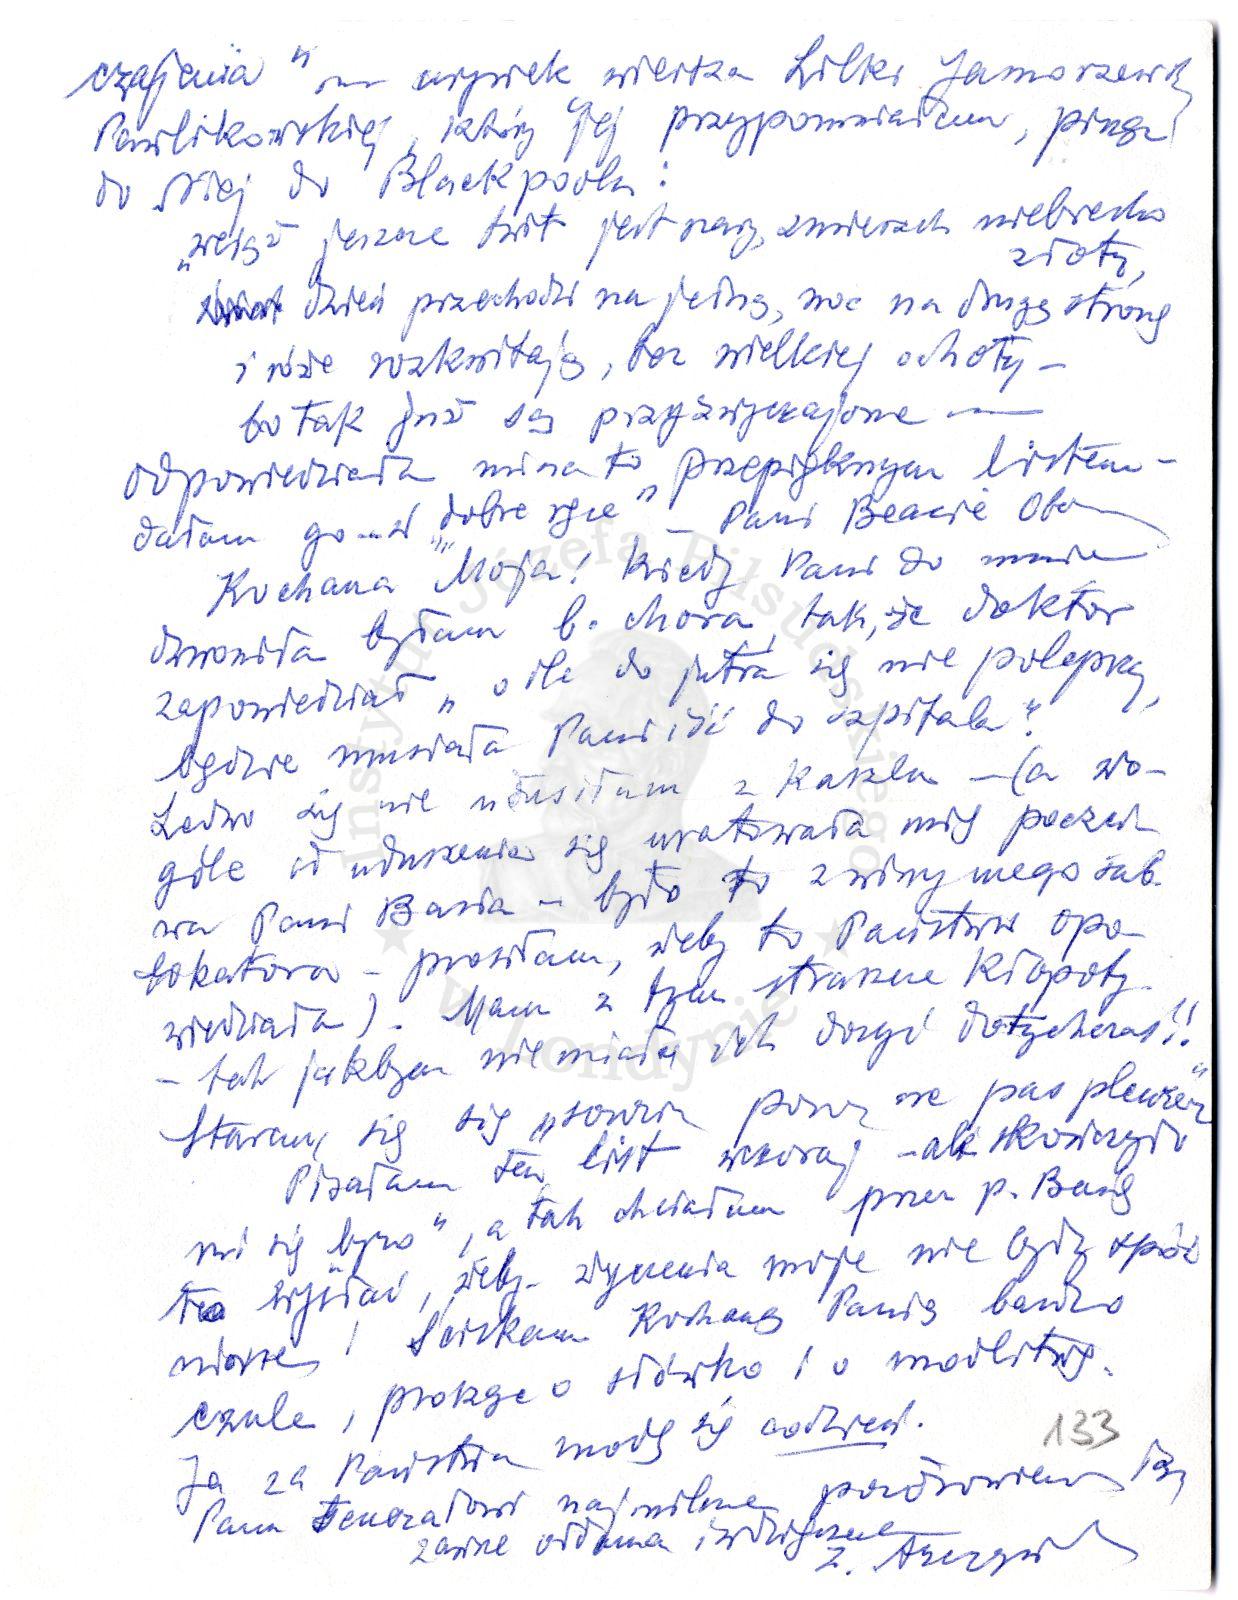 czajenia" — urywek wiersza Lilki Jasnorzewskiej
Pawlikowskiej, który jej przypomniałam, pisząc
do Niej do Blackpoolu:
"wciąż jeszcze świt jest szary, zmierzch niebiesko
złoty,
dzień przechodzi na jedną, noc na drugą stronę
i róże rozkwitają, bez wielkiej ochoty —
bo tak już są przyzwyczajone —
odpowiedziała mi na to przepięknym listem —
dałam go - w "dobre ręce" — Pani Beacie Obe
Kochana Moja! kiedy Pani do mnie
dzwoniła byłam b. chora, tak, że doktor
zapowiedział "o ile do jutra się nie polepszy,
będzie musiała Pani iść do szpitala".
Ledwo się nie udusiłam z kaszlu — (a wo-
góle od uduszenia się uratowała mię poczci-
wa Pani Basia — było to z winy mego sub-
lokatora — prosiłam, żeby to Państwu opo-
wiedziała). Mam z tym straszne kłopoty
— tak jakbym nie miała ich dosyć dotychczas!!
Staram się
Pisałam ten list wczoraj — ale skończyło
mi się ", a tak chciałam przez p. Basię
to wysłać, żeby życzenia moje nie były spóź
nione! Ściskam Kochaną Panią bardzo
czule, proszę o słówko i o modlitwę.
Ja za Państwa modlę się codzień.
133
Panu Generałowi najmilsze pozdrowienia
zawsze oddana i wdzięczna
Z.
Instytut Józefa Piłsudskiego
w Londynie